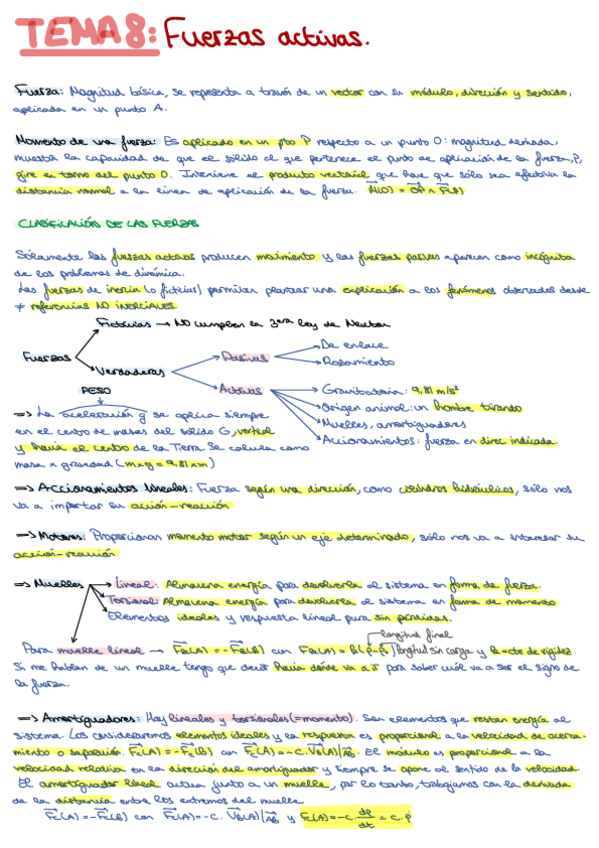 TEMA 8: Fuerzas activas.
Fuerza: Magnitud básica, se representa a través de un vector con su módulo, dirección y sentido,
aplicada en un punto A.
Momento de una fuerza: Es aplicado en un pto P respecto a un punto O: magnitud derivada,
muestra la capacidad de que el sólido al que pertenece el punto de aplicación de la fuerza, P,
gire en torno del punto O. Interviene el producto vectorial que hace que sólo sea efectiva la
distancia normal a la línea de aplicación de la fuerza. M(O) = OP ∧ F(A)
CLASIFICACIÓN DE LAS FUERZAS
Sólamente las fuerzas activas producen movimiento y las fuerzas pasivas aparecen como incógnita
de los problemas de dinámica.
Las fuerzas de inercia (o ficticias) permiten plantear una explicación a los fenómenos observados desde
≠ referencias NO INERCIALES.
Ficticias → NO cumplen la 3era ley de Newton
Fuerzas
Verdaderas
Pasivas
De enlace
Rozamiento
Activas
Gravitatoria: 9,81 m/s²
Origen animal: un hombre tirando
Muelles, amortiguadores
Accionamientos: fuerza en direc. indicada.
PESO
⇒ La aceleración g se aplica siempre
en el centro de masas del sólido G, vertical
y hacia el centro de la Tierra. Se calcula como
masa x gravedad (m x g = 9,81 x m)
⇒ Accionamientos lineales: Fuerza según una dirección, como cilindros hidráulicos, sólo nos
va a importar su acción-reacción
⇒ Motores: Proporcionan momento motor según un eje determinado, sólo nos va a interesar su
acción-reacción
⇒ Muelles
Lineal: Almacena energía para devolverla al sistema en forma de fuerza.
Torsional: Almacena energía para devolverla al sistema en forma de momento
Elementos ideales y respuesta lineal pura sin pérdidas.
longitud final
Para muelle lineal → FR(A) = -FR(B) con FR(A) = k(ρ-ρ₀) longitud sin carga y k=cte de rigidez.
Si me hablan de un muelle tengo que decir hacia dónde va a ir para saber cuál va a ser el signo de
la fuerza.
⇒ Amortiguadores: Hay lineales y torsionales (=momento). Son elementos que restan energía al
sistema. Los consideraremos elementos ideales y la respuesta es proporcional a la velocidad de acerca-
miento o separación. Fc(A) = -Fc(B) con Fc(A) = -c. VB(A)|AB. El módulo es proporcional a la
velocidad relativa en la dirección del amortiguador y siempre se opone al sentido de la velocidad.
El amortiguador lineal actúa junto a un muelle, por lo tanto, trabajamos con la derivada
de la distancia entre los extremos del muelle
Fc(A) = -Fc(B) con Fc(A) = -c. VB(A)|AB y Fc(A) = -c. dρ/dt = c. ρ̇